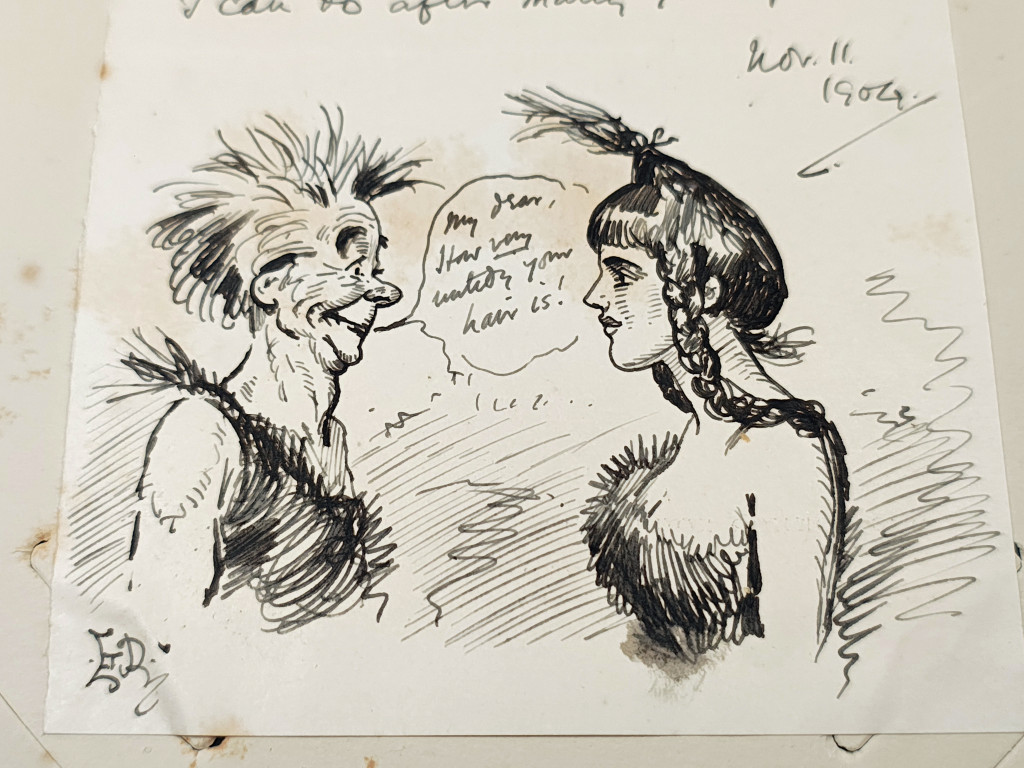 I can do after many
Nov. 11.
1904.
My dear,
How very
untidy your
hair is!